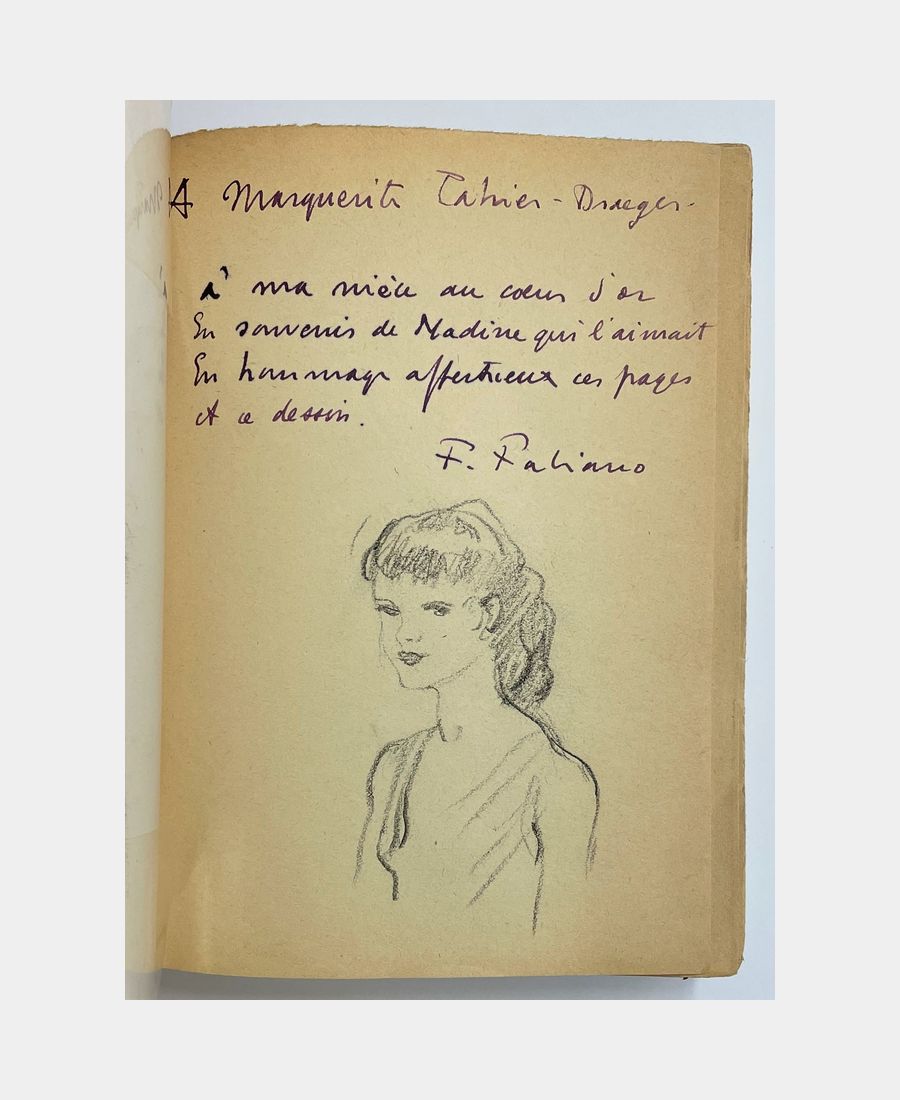 A Marguerite Cahier-Draeger-
à ma nièce au coeur d'or
En souvenir de Nadine qui l'aimait
En hommage affectueux ces pages
et ce dessin.
F. Fabiano